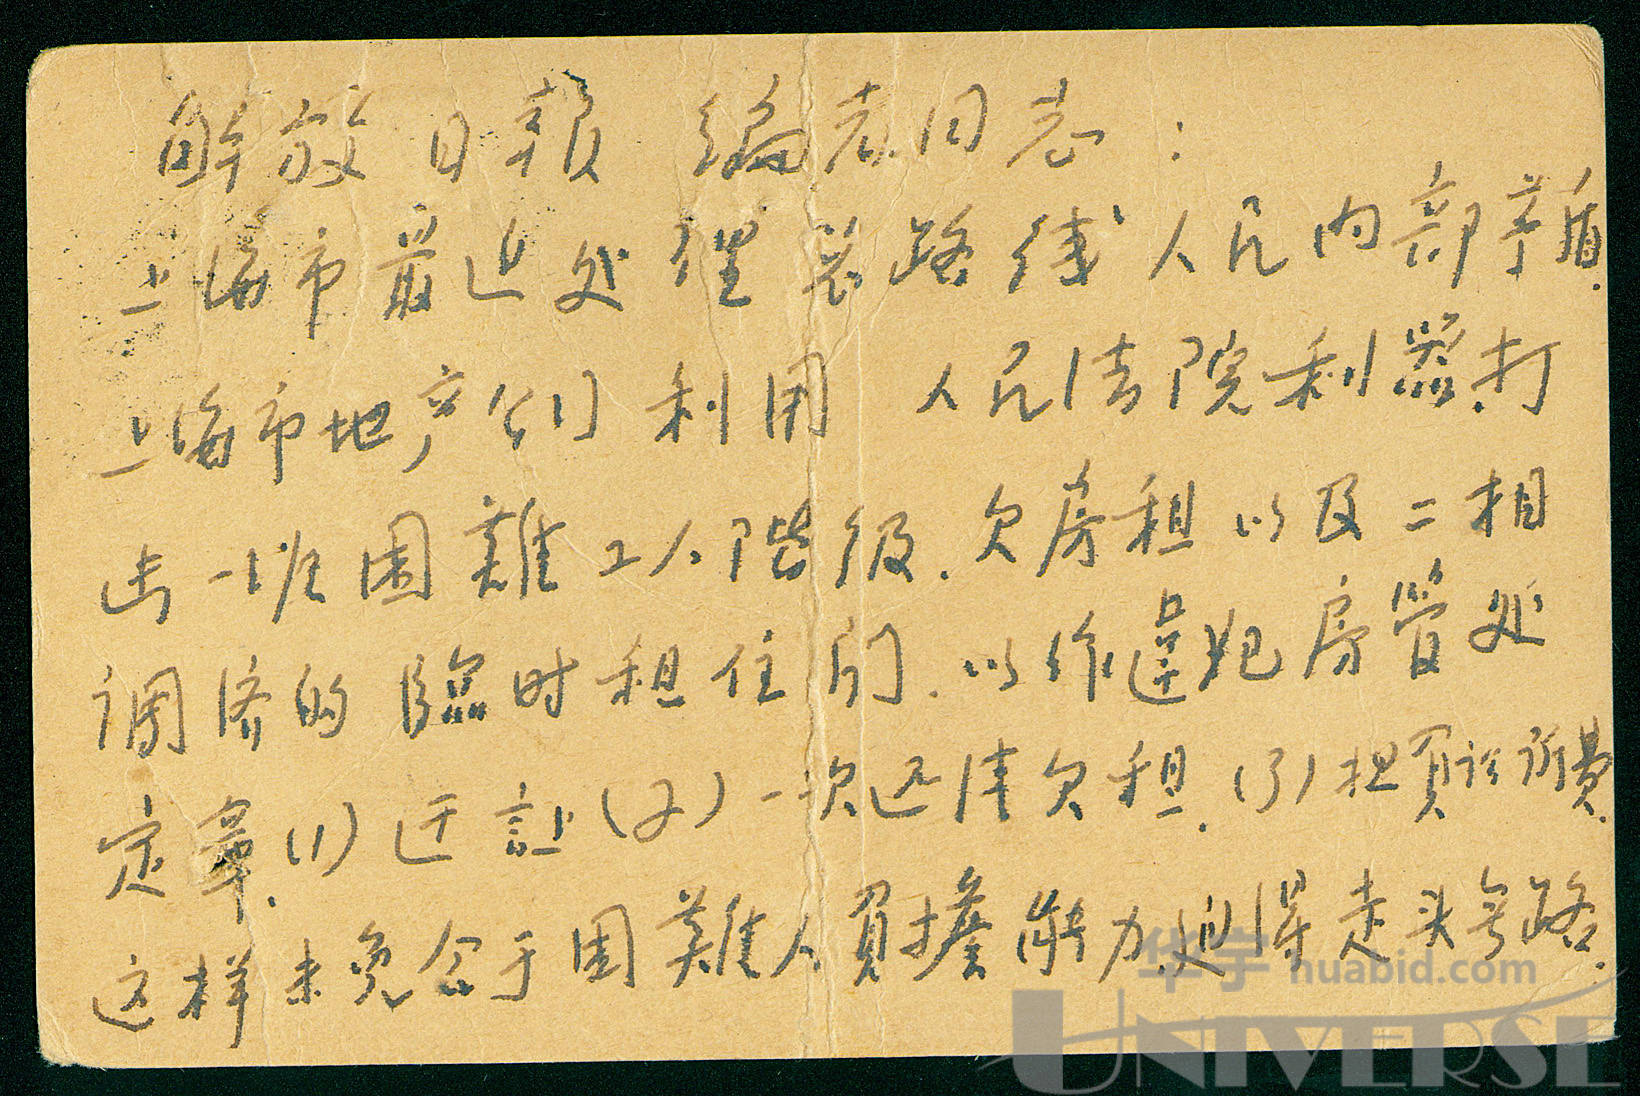 解放日報 编者同志:
上海市最近处理 路线人民内部矛盾.
上海市地产公司利用 人民法院利器.打
击一班困難工人階级.欠房租以及二相
调济的臨时租住 .以作違犯房管处
定章.(1)迁 (2)一次还清欠租.(3)担負诉费.
这样未免令于困難人負擔能力.迫得走头無路.
华宇 huabid.com
UNIVERSE